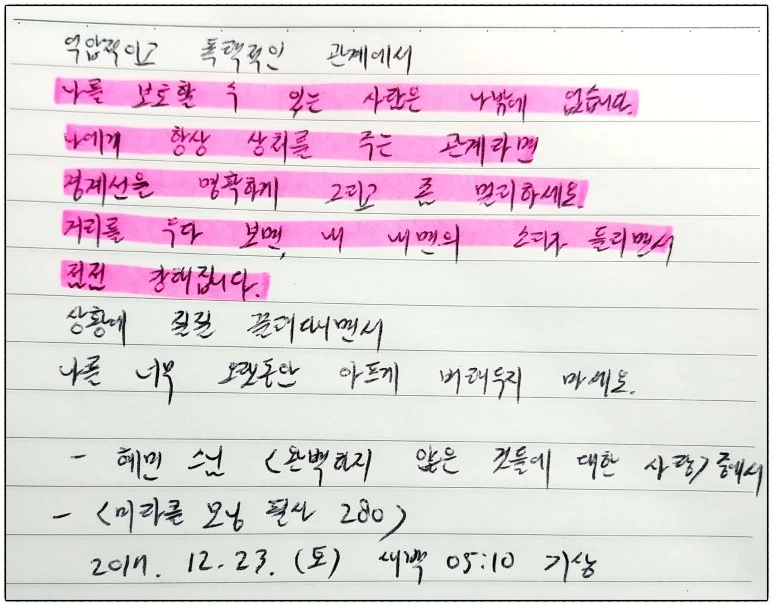 억압적이고 폭력적인 관계에서
나를 보호할 수 있는 사람은 나밖에 없습니다.
나에게 항상 상처를 주는 관계라면
경계선을 명확하게 그리고 좀 멀리하세요.
거리를 두다 보면, 내 내면의 소리가 들리면서
점점 강해집니다.
상황에 질질 끌려다니면서
나를 너무 오랫동안 아프게 버려두지 마세요.
- 혜민 스님 <완벽하지 않은 것들에 대한 사랑> 중에서
- <미라클 모닝 필사 280>
2017. 12. 23. (토) 새벽 05:10 기상